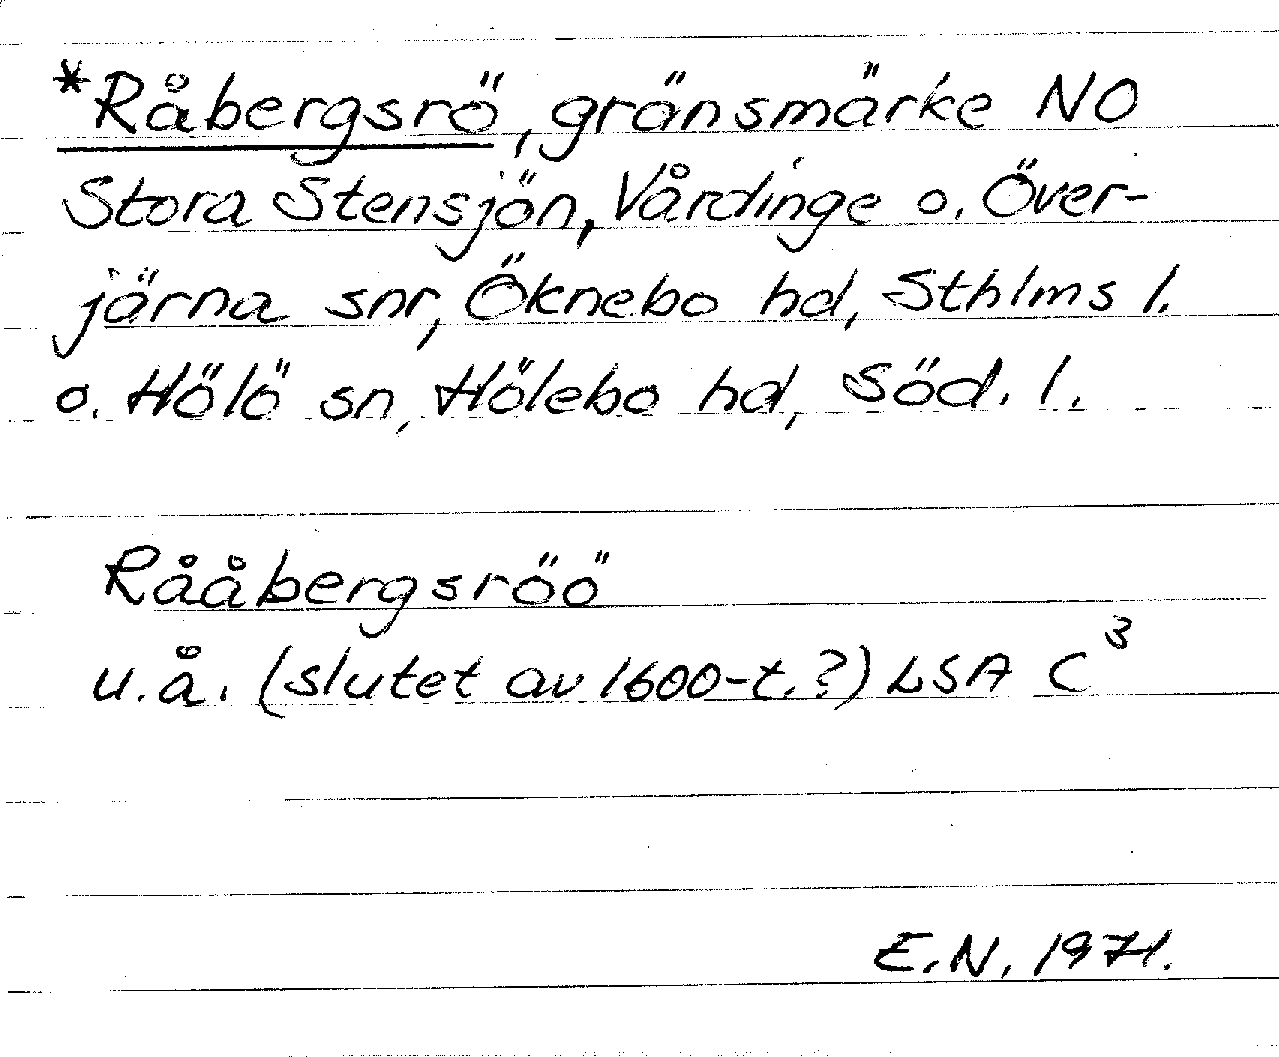 *Råbergsrö, gränsmärke NO
Stora Stensjön, Vårdinge o. Över-
järna snr, Öknebo hd, Sthlms l.
o. Hölö sn, Hölebo hd, Söd. l.
Rååbergsröö
u.å. (slutet av 1600-t.?) LSA C³
E.N. 1971.